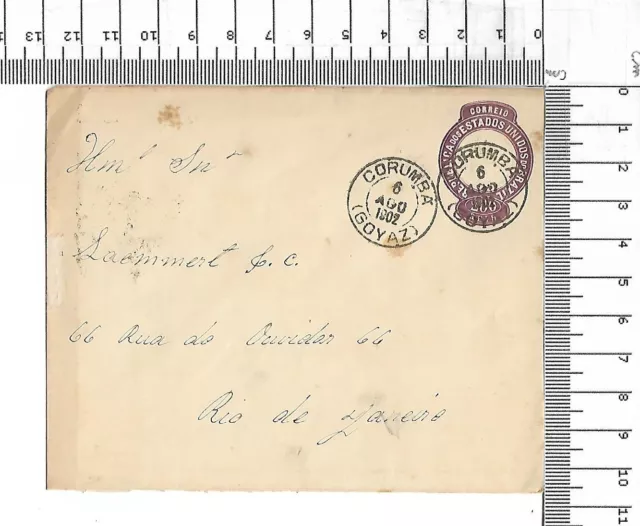 13 12 11 10 9 8 7 6 5 4 3 2 1 0
Cm
Cm
0
1
2
3
4
5
6
7
8
9
10
11
CORREIO
REPUBLICA DOS ESTADOS UNIDOS DO BRAZIL
200
CORUMBÁ
6
AGO
1902
(GOYAZ)
CORUMBÁ
6
AGO
(GOYAZ)
Ilmo Snr
Laemmert & C.
66 Rua do Ouvidor 66
Rio de Janeiro